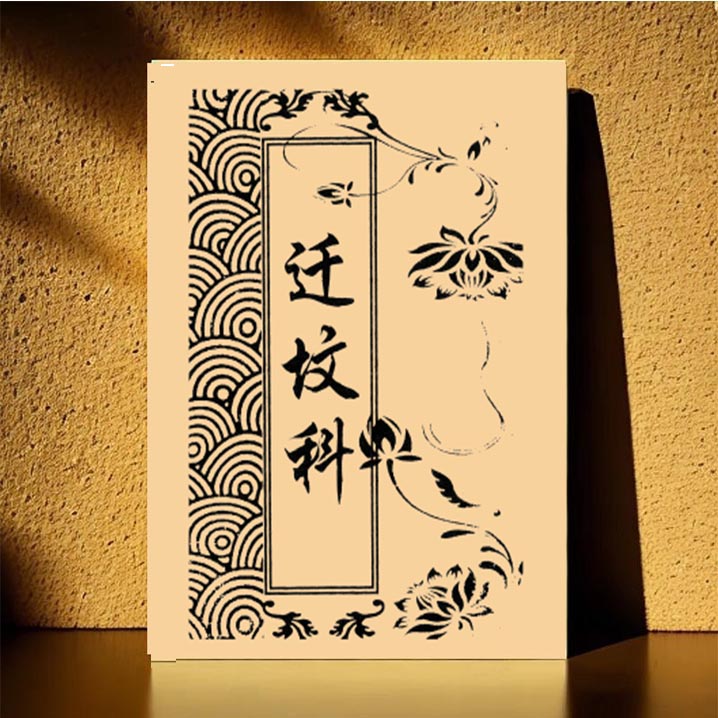 迁坟科